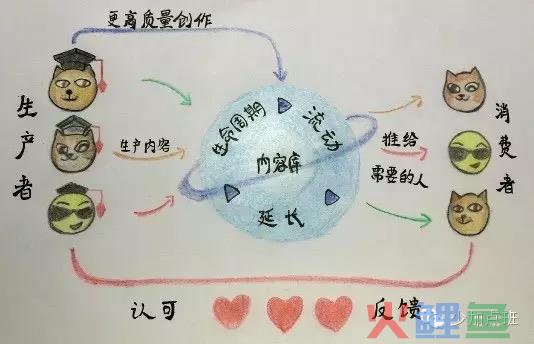 更高质量创作
生产者
生产内容
生命周期
流动
内容库
延长
推给
需要的人
消费者
认可
反馈
火鲤鱼
少加点班